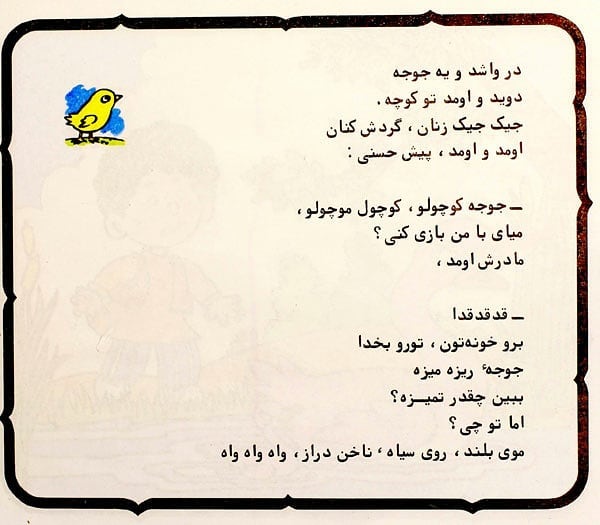 در واشد و یه جوجه
دوید و اومد تو کوچه .
جیک جیک زنان ، گردش کنان
اومد و اومد ، پیش حسنی :
ــ جوجه کوچولو ، کوچول موچولو ،
میای با من بازی کنی ؟
مادرش اومد ،
ــ قدقدقدا
برو خونه‌تون ، تورو بخدا
جوجهٔ ریزه میزه
ببین چقدر تمیـــزه؟
اما تو چی ؟
موی بلند ، روی سیاه ، ناخن دراز ، واه واه واه